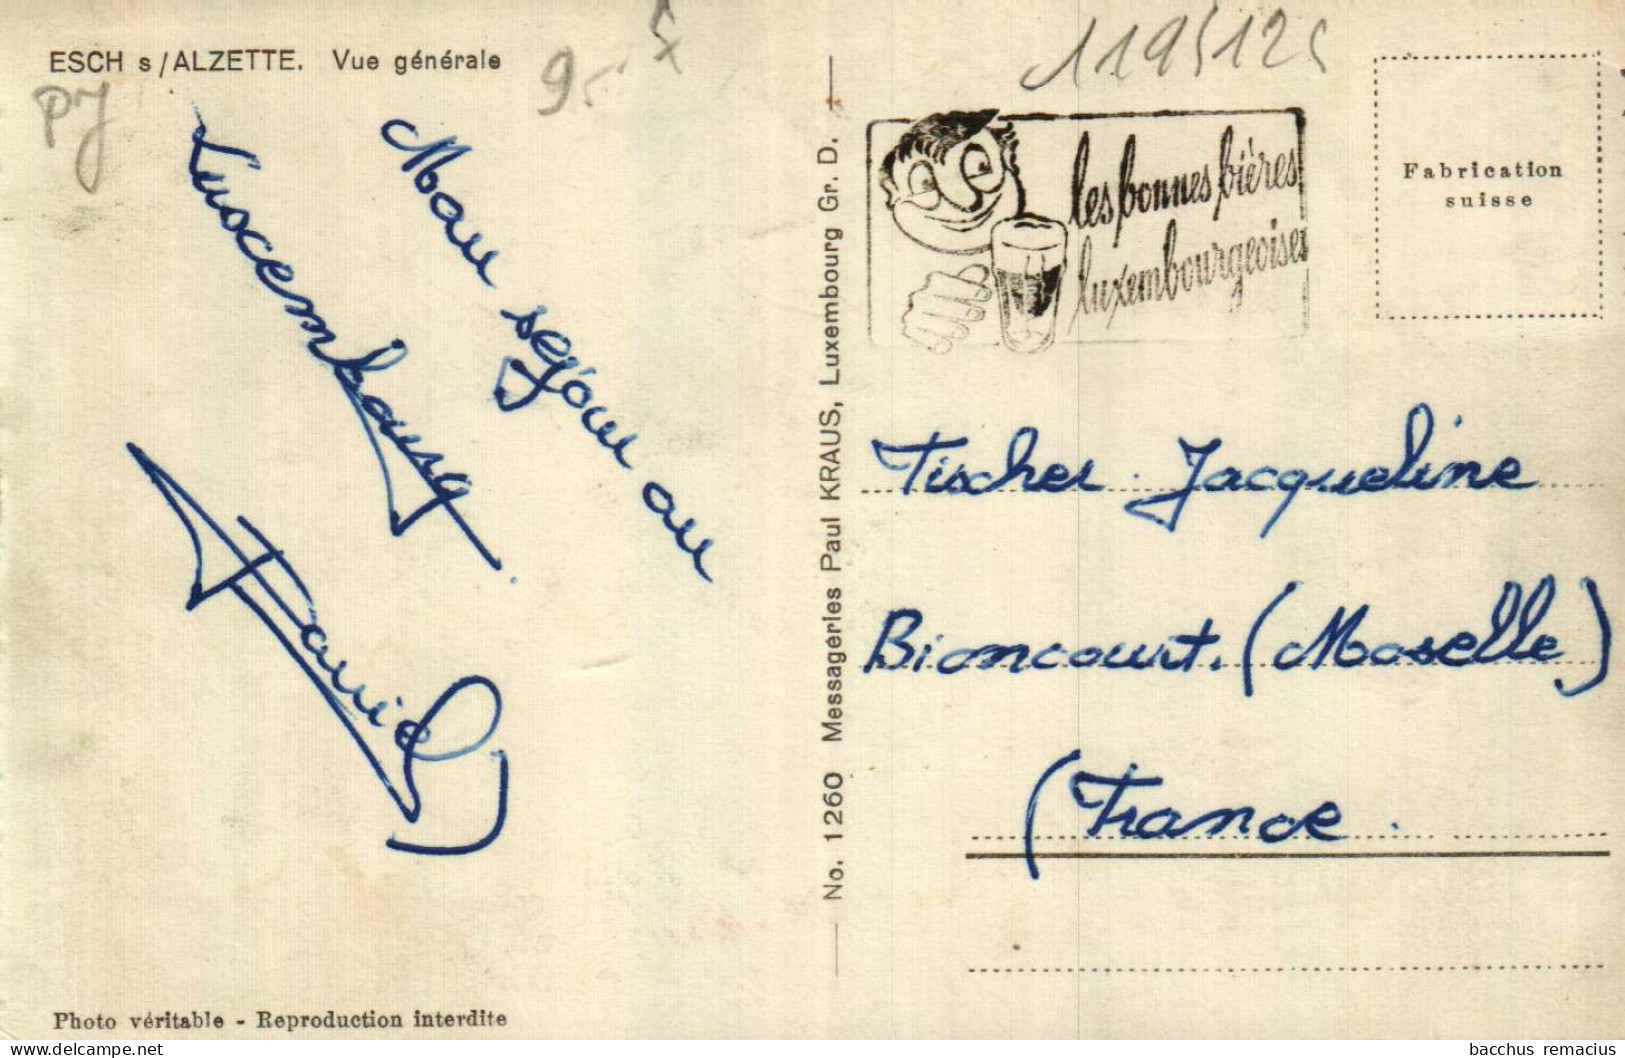 ESCH s/ALZETTE. Vue générale
PJ
9.-
119512
Mon sejour au
Luxembourg
Daniel
No. 1260 Messageries Paul KRAUS, Luxembourg Gr. D.
les bonnes bières
luxembourgeoises
Fabrication
suisse
Tischer Jacqueline
Bioncourt. (Moselle)
(France.
Photo véritable - Reproduction interdite
bacchus remacius
delcampe.net